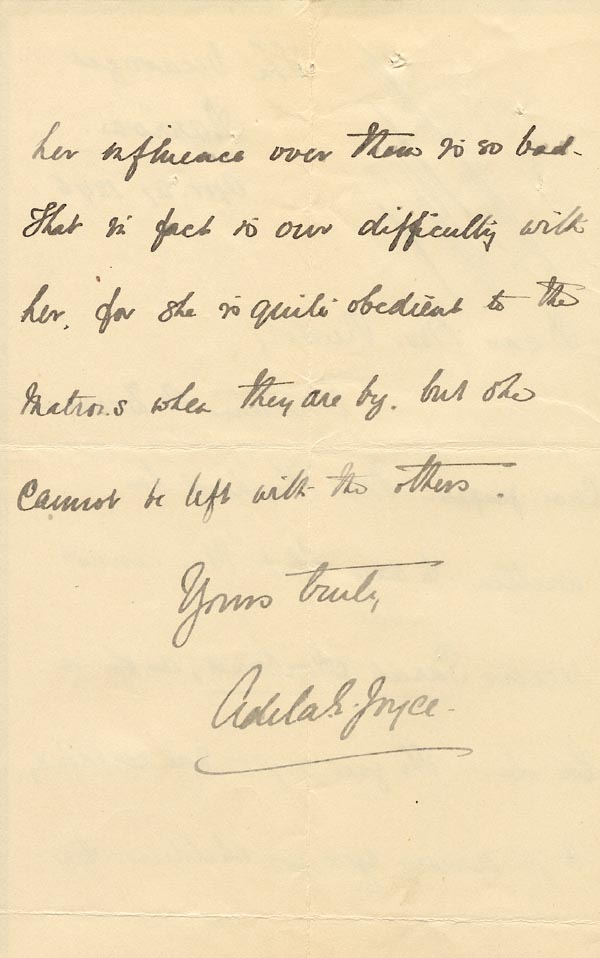 her influence over them is so bad.
That in fact is our difficulty with
her, for she is quite obedient to the
Matrons when they are by. but she
cannot be left with the others.
Yours truly
Adela E. Joyce.